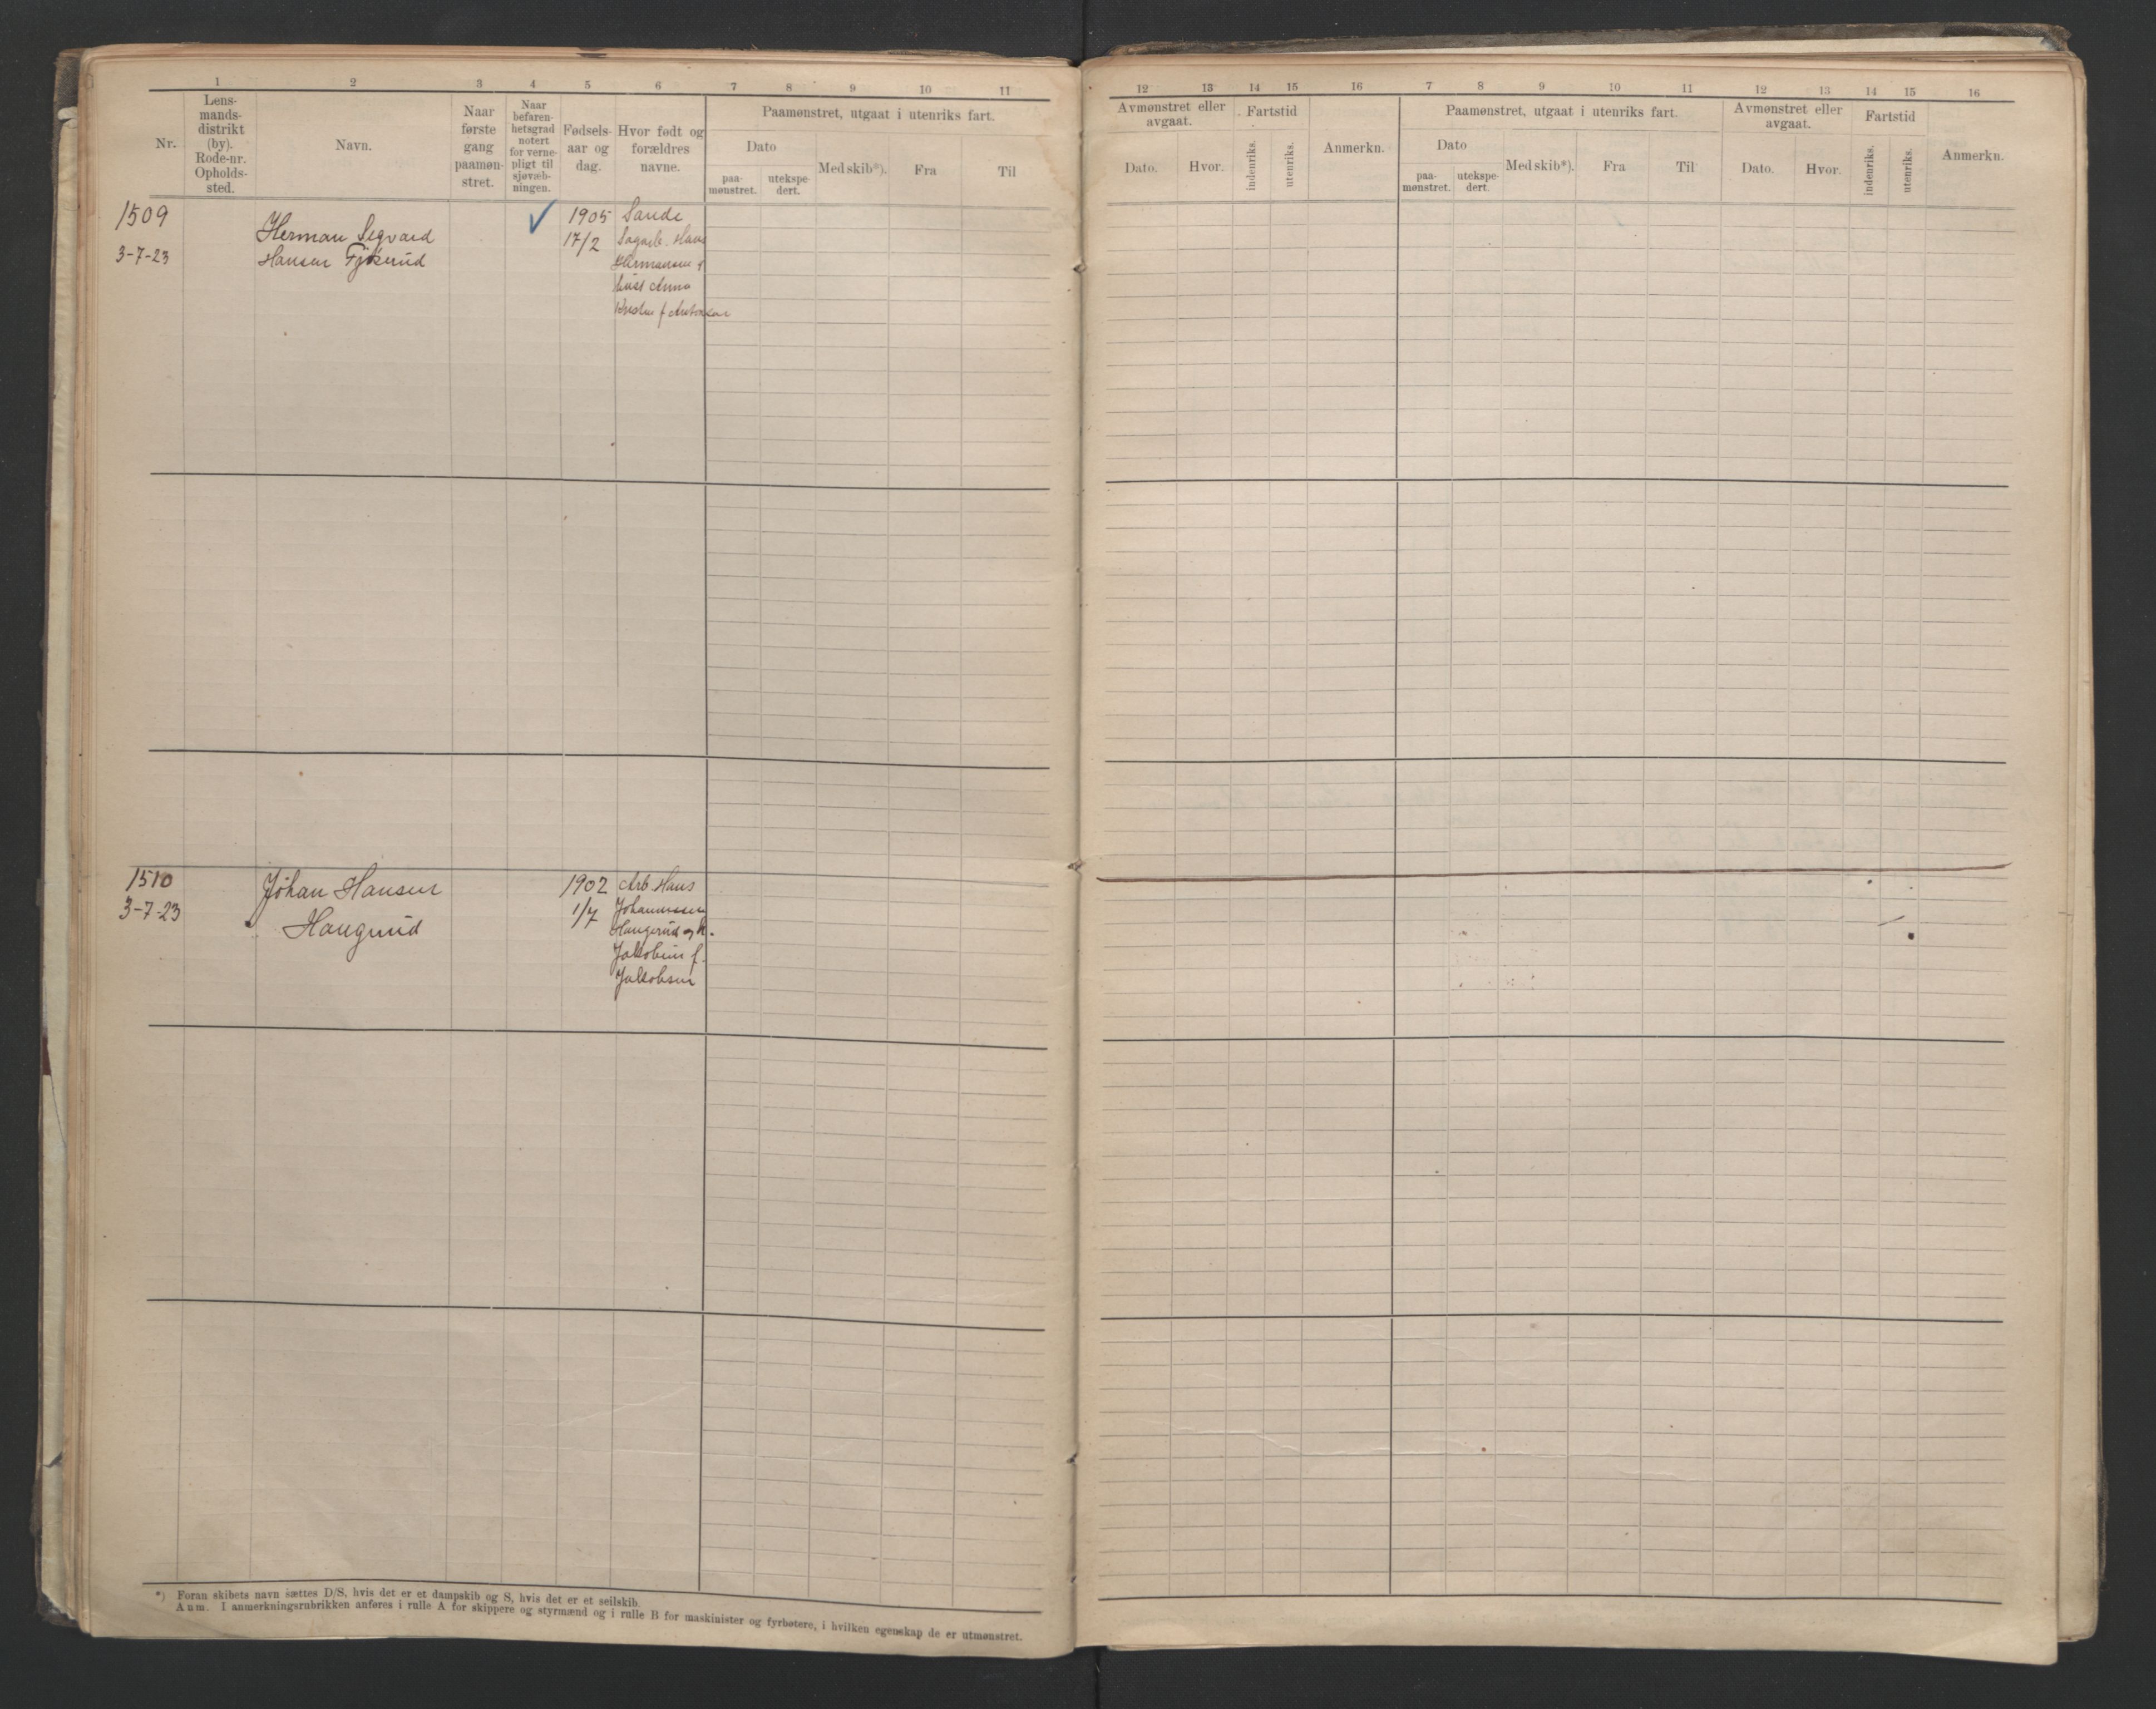 1 2 3 4 5 6 7 8 9 10 11
Nr.
Lens-
mands-
distrikt
(by).
Rode-nr.
Opholds-
sted.
Navn.
Naar
første
gang
paamøn-
stret.
Naar
befaren-
hetsgrad
notert
for verne-
pligt til
sjøvæb-
ningen.
Fødsels-
aar og
dag.
Hvor født og
forældres
navne.
Paamønstret, utgaat i utenriks fart.
Dato
paa-
mønstret.
utekspe-
dert.
Med skib*).
Fra
Til
1509
3-7-23
Herman Sigvard
Hansen Fjøserud
✓
1905
17/2
Sande
Sagarb. Hans
Hermansen
hust Anna
f Antonsen
1510
3-7-23
Johan Hansen
Haugerud
1902
1/7
Arb Hans
Johannessen
Haugerud og h.
Jakobine f.
Jakobsen
*) Foran skibets navn sættes D/S, hvis det er et dampskib og S, hvis det er et seilskib.
Anm. I anmerkningsrubrikken anføres i rulle A for skippere og styrmænd og i rulle B for maskinister og fyrbøtere, i hvilken egenskap de er utmønstret.
12 13 14 15 16 7 8 9 10 11 12 13 14 15 16
Avmønstret eller
avgaat.
Dato.
Hvor.
Fartstid
indenriks.
utenriks.
Anmerkn.
Paamønstret, utgaat i utenriks fart.
Dato
paa-
mønstret.
utekspe-
dert.
Med skib*).
Fra
Til
Avmønstret eller
avgaat.
Dato.
Hvor.
Fartstid
indenriks.
utenriks.
Anmerkn.